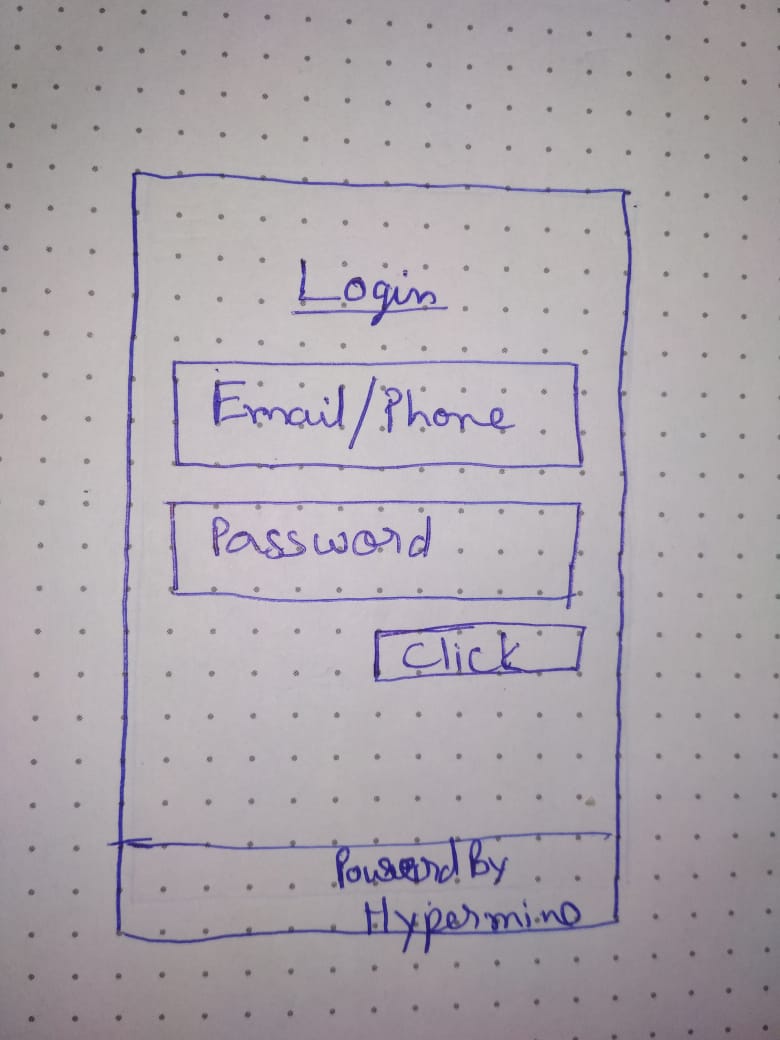 Login
Email/Phone
Password
Click
Powered By
Hypermino